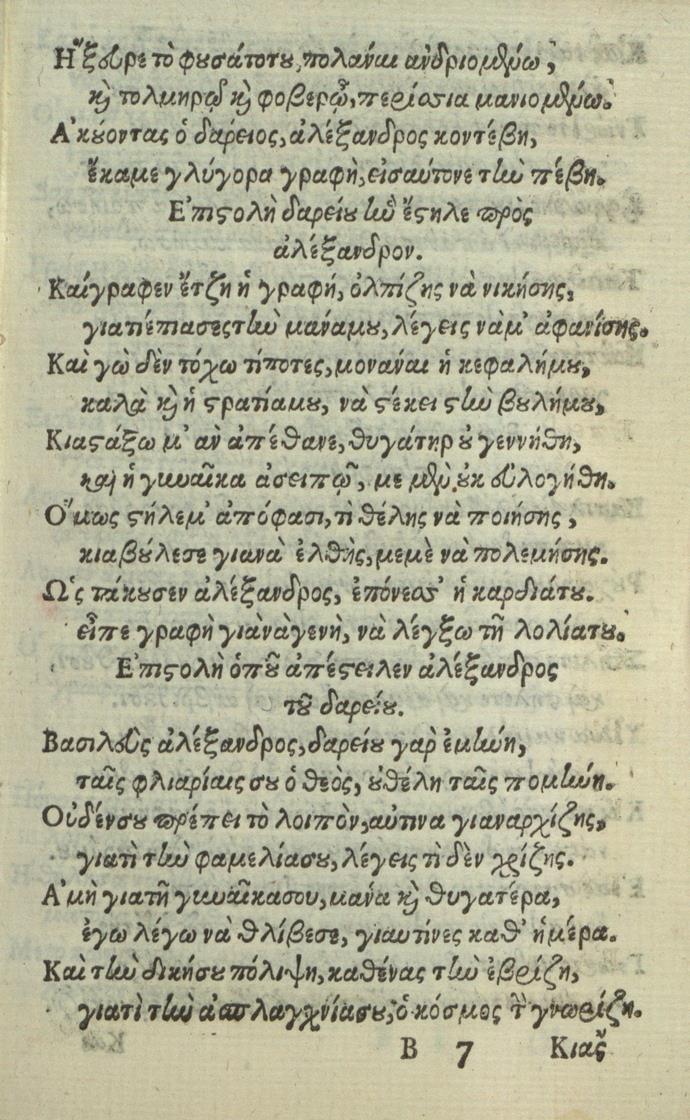 Ἤξευρε τὸ φυσάτοτου, πολάναι ἀνδριομένω,
καὶ τολμηρῷ καὶ φοβερῷ, περίσσια μανιομένω.
Ἀκούοντας ὁ δάρειος, ἀλέξανδρος κοντέβη,
ἔκαμε γλύγορα γραφὴ, εἰσαύτονε τὴν πέβη.
Ἐπιστολὴ δαρείου ἣν ἔστηλε πρὸς
ἀλέξανδρον.
Καίγραφεν ἔτζη ἡ γραφή, ὀλπίζης νὰ νικήσης,
γιατὶ ἐπιασες τὴν μάναμου, λέγεις νὰμ' ἀφανίσης.
Καὶ γὼ δὲν τόχω τίποτες, μονάναι ἡ κεφαλήμου,
καλὰ καὶ ἡ στρατίαμου, νὰ στέκει στὴν βουλήμου,
Κιαστάξω μ' αν ἀπέθανε, θυγάτηρ οὐ γεννήθη,
καὶ ἡ γυναῖκα ἀσειπῶ, με μὲν οὐκ εὐλογήθη.
Ὅμως στήλεμ' ἀπόφασι, τὶ θέλης νὰ ποιήσης,
κιαβούλεσε γιανὰ ἐλθῆς, μεμὲ νὰ πολεμήσης.
Ὡς τάκουσεν ἀλέξανδρος, ἐπόνεσ' ἡ καρδιάτου.
εἶπε γραφὴ γιὰνὰγενὴ, νὰ λέγξω τῆ λολίατου.
Ἐπιστολὴ ὁποῦ ἀπέστειλεν ἀλέξανδρος
τοῦ δαρείου.
Βασιλεὺς ἀλέξανδρος, δαρείου γαρ ἐμήν,
ταῖς φλιαρίαις σου ὁ θεὸς, οὐθέλη ταῖς πομήν.
Οὐδένσου πρέπει τὸ λοιπὸν, αὖτινα γιαναρχίζης,
γιατὶ τὴν φαμελίασου, λέγεις τὶ δὲν χρίζης.
Ἀμὴ γιατῆ γυναῖκασου, μάνα καὶ θυγατέρα,
ἐγω λέγω νὰ θλίβεσε, γιαυτίνες καθ' ἡμέρα.
Καὶ τὴν δικήσου πόλιψη, καθένας τὴν ἐβρίζη,
γιατὶ τὴν ἀσπλαγχνίασου, ὁ κόσμος τὴν γνωρίζη.
Β 7 Κιαξ